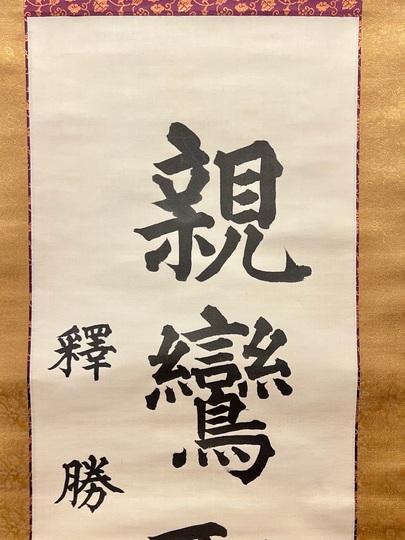 親鸞
釋勝